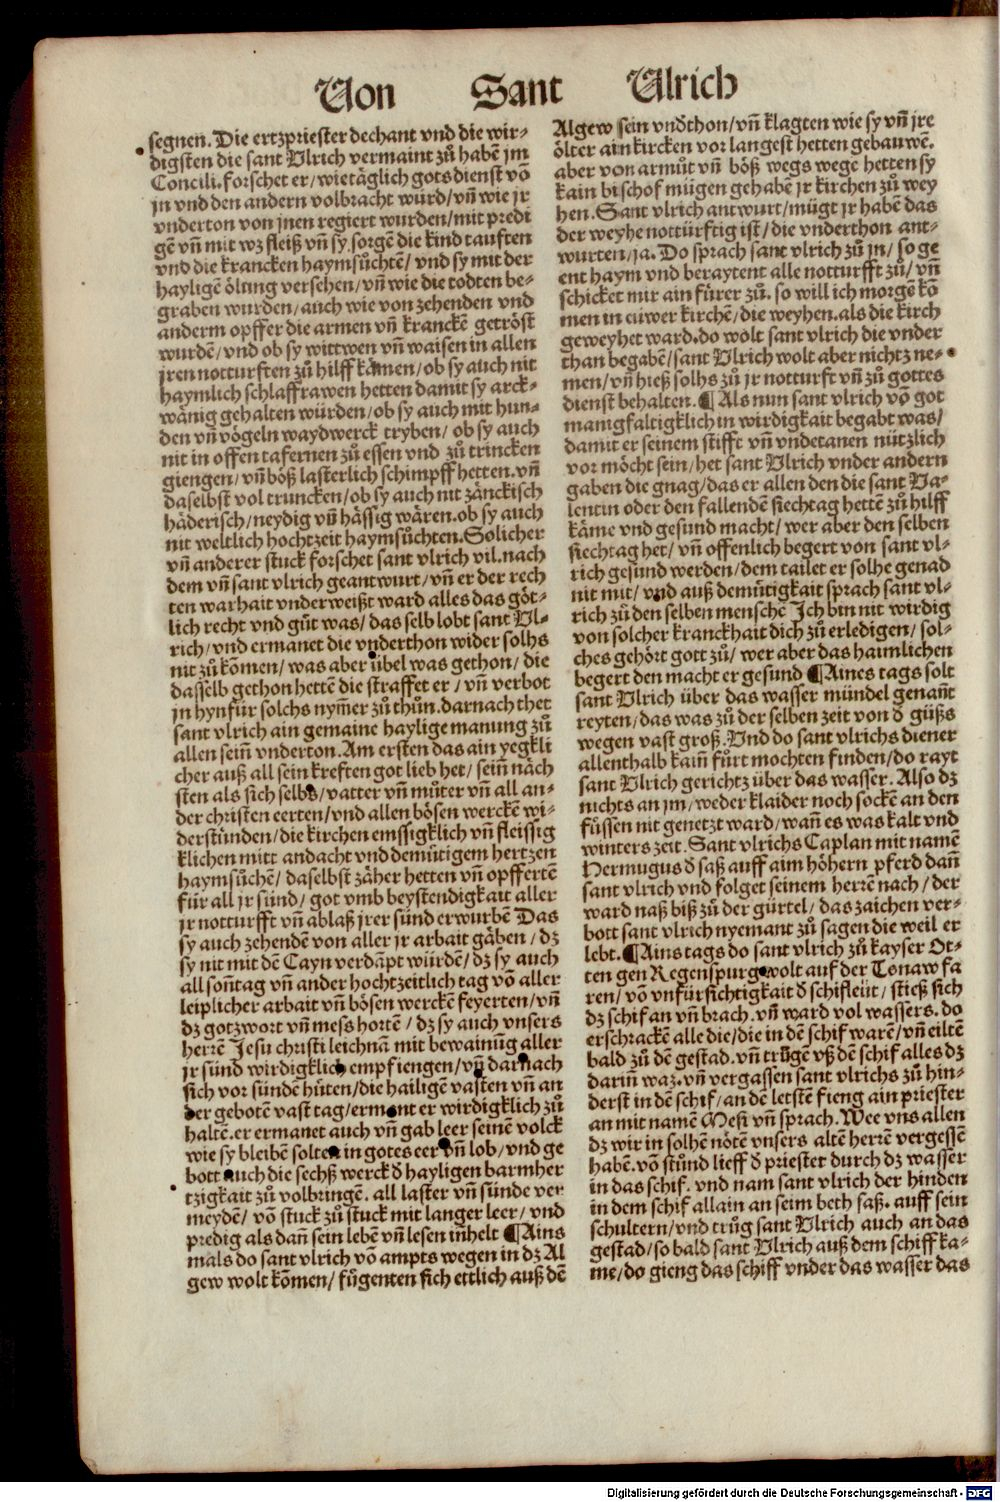 Von Sant Ulrich
segnen. Die ertzpriester dechant vnd die wir-
digsten die sant Vlrich vermaint zů habē jm
Concili. forschet er/ wie täglich gots dienst vō
jn vnd den andern volbracht wurd/ vn̄ wie jr
vnderton von jnen regiert wurden/ mit predi
gē vn̄ mit wz fleiß vn̄ sy sorgē die kind tauften
vnd die krancken haymsůchtē/ vnd sy mit der
hayligē ölung versehen/ vn̄ wie die todten be-
graben wurden/ auch wie von zehenden vnd
anderm opffer die armen vn̄ kranckē getröst
wurdē/ vnd ob sy wittwen vn̄ waisen in allen
jren notturften zů hilff kämen/ ob sy auch nit
haymlich schlaffrawen hetten damit sy arck-
wänig gehalten würden/ ob sy auch mit hun-
den vn̄ vögeln waydwerck tryben/ ob sy auch
nit in offen tafernen zů essen vnd zů trincken
giengen/ vn̄ böß lasterlich schimpff hetten. vn̄
daselbst vol truncken/ ob sy auch nit zänckisch
häderisch/ neydig vn̄ hässig wären. ob sy auch
nit weltlich hochtzeit haymsůchten. Solicher
vn̄ anderer stuck forschet sant vlrich vil. nach
dem vn̄ sant vlrich geantwurt/ vn̄ er der rech
ten warhait vnderweißt ward alles das göt-
lich recht vnd gůt was/ das selb lobt sant Vl-
rich/ vnd ermanet die vnderthon wider solhs
nit zů kōmen/ was aber übel was gethon/ die
dasselb gethon hettē die straffet er/ vn̄ verbot
jn hynfür solchs nym̄er zů thůn. darnach thet
sant vlrich ain gemaine haylige manung zů
allen seim̄ vnderton. Am ersten das ain yegkli
cher auß all sein kreften got lieb het/ sein̄ näch
sten als sich selbs/ vatter vn̄ můter vn̄ all an-
der christen eerten/ vnd allen bösen werckē wi-
derstünden/ die kirchen emssigklich vn̄ fleissig
klichen mitt andacht vnd demütigem hertzen
haymsůchē/ daselbst zäher hetten vn̄ opffertē
für all jr sünd/ got vmb beystendigkait aller
jr notturfft vn̄ ablaß jrer sünd erwurbē Das
sy auch zehendē von aller jr arbait gäben/ dz
sy nit mit dē Cayn verdāpt würdē/ dz sy auch
all son̄tag vn̄ ander hochtzeitlich tag vō aller
leiplicher arbait vn̄ bösen werckē feyerten/ vn̄
dz gotzwort vn̄ mess hortē/ dz sy auch vnsers
herrē Jesu christi leichnā mit bewainūg aller
jr sünd wirdigklich empfiengen/ vn̄ darnach
sich vor sündē hüten/ die hailigē vasten vn̄ an
der gebotē vast tag/ ermant er wirdigklich zů
haltē. er ermanet auch vn̄ gab leer seinē volck
wie sy bleibē solten in gotes eer vn̄ lob/ vnd ge
bott auch die sechß werck d hayligen barmher
tzigkait zů volbringē. all laster vn̄ sünde ver
meydē/ vō stuck zů stuck mit langer leer/ vnd
predig als dan̄ sein lebē vn̄ lesen in̄helt ¶ Ains
mals do sant vlrich vō ampts wegen in dz Al
gew wolt kōmen/ fůgenten sich ettlich auß dē
Algew sein vndthon/ vn̄ klagten wie sy vn̄ jre
ölter ain kircken vor langest hetten gebauwē.
aber von armůt vn̄ böß wegs wege hetten sy
kain bischof mügen gehabē jr kirchen zů wey
hen. Sant vlrich antwurt/ mügt jr habē das
der weyhe notturftig ist/ die vnderthon ant-
wurten/ ja. Do sprach sant vlrich zů jn/ so ge
ent haym vnd beraytent alle notturfft zů/ vn̄
schicket mir ain fürer zů. so will ich morgē kō
men in euwer kirchē/ die weyhen. als die kirch
geweyhet ward. do wolt sant vlrich die vnder
than begabē/ sant Vlrich wolt aber nichtz ne-
men/ vn̄ hieß solhs zů jr notturft vn̄ zů gottes
dienst behalten. ¶ Als nun sant vlrich vō got
manigfaltigklich in wirdigkait begabt was/
damit er seinem stifft vn̄ vndetanen nützlich
vor möcht sein/ het sant Vlrich vnder andern
gaben die gnag/ das er allen den die sant Va-
lentin oder den fallendē siechtag hettē zů hilff
käme vnd gesund macht/ wer aber den selben
siechtag het/ vn̄ offenlich begert von sant vl-
rich gesund werden/ dem tailet er solhe genad
nit mit/ vnd auß demütigkait sprach sant vl-
rich zů den selben menschē Ich bin nit wirdig
von solcher kranckhait dich zů erledigen/ sol-
ches gehört gott zů/ wer aber das haimlichen
begert den macht er gesund ¶ Aines tags solt
sant Vlrich über das wasser mündel genan̄t
reyten/ das was zů der selben zeit von d güßs
wegen vast groß. Vnd do sant vlrichs diener
allenthalb kaim̄ fůrt mochten finden/ do rayt
sant Vlrich gerichtz über das wasser. Also dz
nichts an jm/ weder klaider noch sockē an den
füssen nit genetzt ward/ wan̄ es was kalt vnd
winters zeit. Sant vlrichs Caplan mit namē
Hermugus d saß auff aim höhern pferd dan̄
sant vlrich vnd folget seinem herrē nach/ der
ward naß biß zů der gürtel/ das zaichen ver-
bott sant vlrich nyemant zů sagen die weil er
lebt. ¶ Ains tags do sant vlrich zů kayser Ot-
ten gen Regenspurg wolt auf der Tonaw fa
ren/ vō vnfürsichtigkait d schifleüt/ stieß sich
dz schif an vn̄ brach. vn̄ ward vol wassers. do
erschrackē alle die/ die in dē schif warē/ vn̄ eiltē
bald zů dē gestad. vn̄ trůgē vß dē schif alles dz
darin̄ waz. vn̄ vergassen sant vlrichs zů hin-
derst in dē schif/ an dē letstē fieng ain priester
an mit namē Mesi vn̄ sprach. Wee vns allen
dz wir in solhē nötē vnsers altē herrē vergessē
habē. vō stůnd lieff d priester durch dz wasser
in das schif. vnd nam sant vlrich der hinden
in dem schif allain an seim beth saß. auff sein
schultern/ vnd trůg sant Vlrich auch an das
gestad/ so bald sant Vlrich auß dem schiff ka-
me/ do gieng das schiff vnder das wasser das
Digitalisierung gefördert durch die Deutsche Forschungsgemeinschaft - DFG